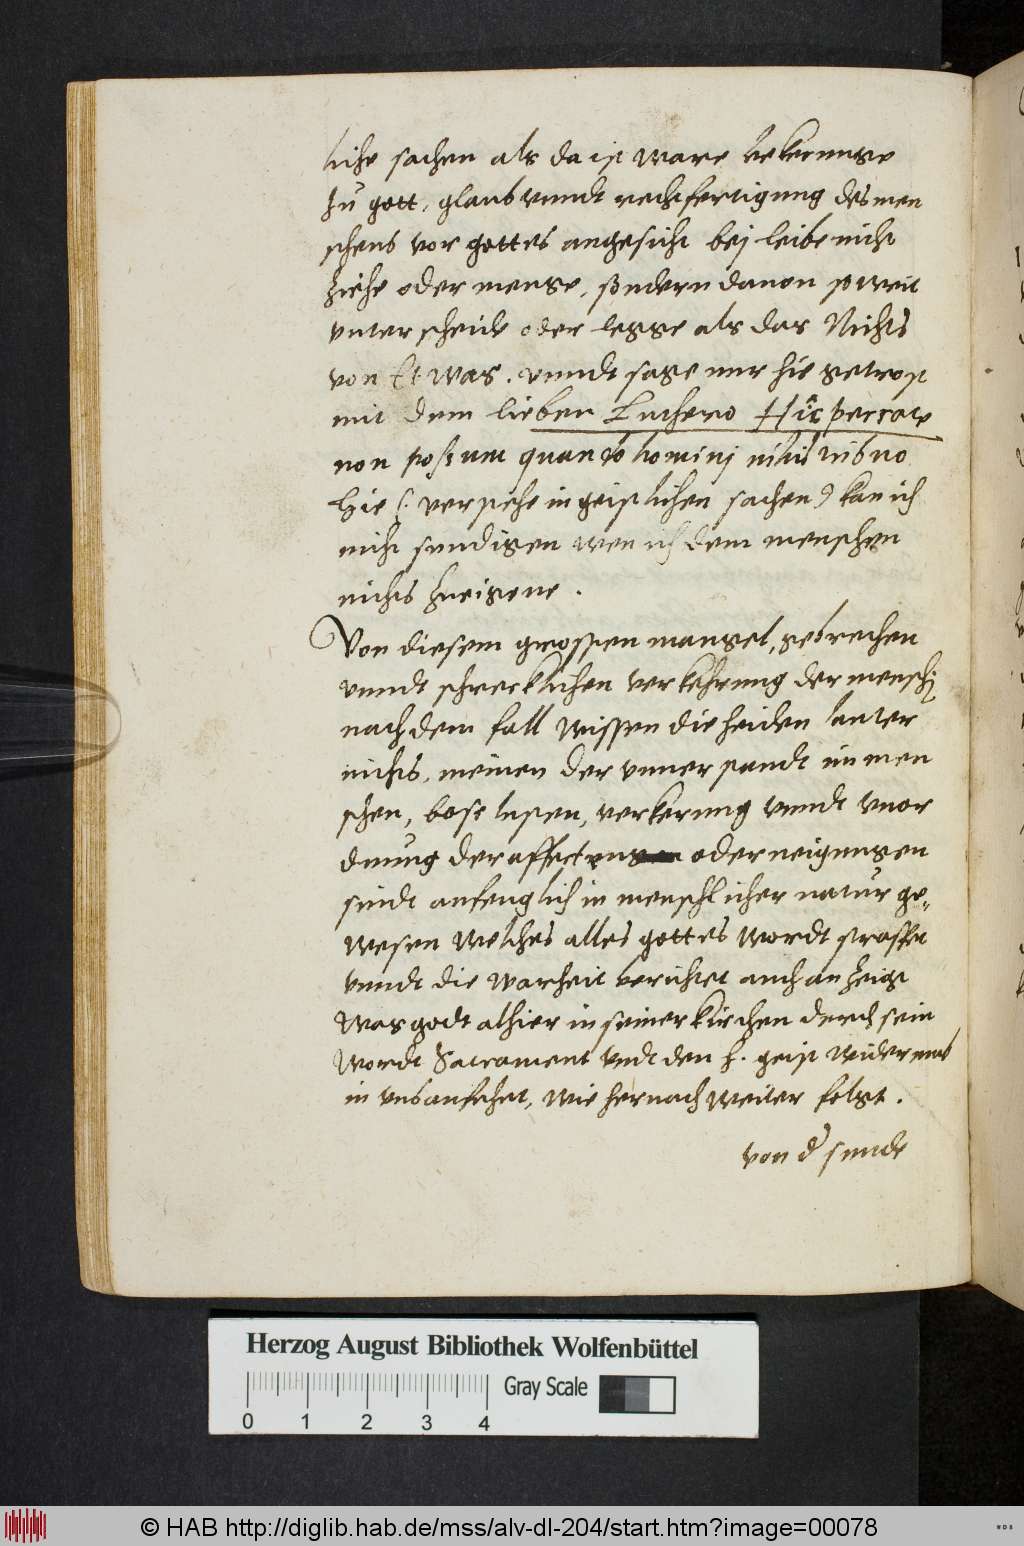 liche sachen als da ist ware bekerunge
zu gott, glaub vnndt rechtfertigung des men
schens vor gottes angesicht bej leibe nicht
ziehe oder menge, sondern dauon so weit
vnterscheide oder lesse als das Nichts
von Etwas. vnndt sage nur hie getrost
mit dem lieben Luthero Hic peccare
non possum quando hominj nihil tribuo
Hie (: verstehe in geistlichen sachen :) kan ich
nicht sundigen wen ich dem menschen
nichts zueigene.
Von diesem grossen mangel, gebrechen
vnndt schrecklichen verkehrung der mensch
nach dem fall wissen die heiden lauter
nichts, meinen der vnuerstandt im men
schen, bose lusten, verkerung vnndt vnor
dnung der affecten oder neigungen
sindt anfenglich in menschlicher natur ge„
wesen welches alles gottes wordt straffet
vnndt die warheit berichtet auch anzeigt
was godt alhier in seiner kirchen durch sein
wordt Sacrament vndt den h. geist widerumb
in vns anfehet, wie hernach weiter folgt.
von d sunde
Herzog August Bibliothek Wolfenbüttel
Gray Scale
0 1 2 3 4
© HAB http://diglib.hab.de/mss/alv-dl-204/start.htm?image=00078